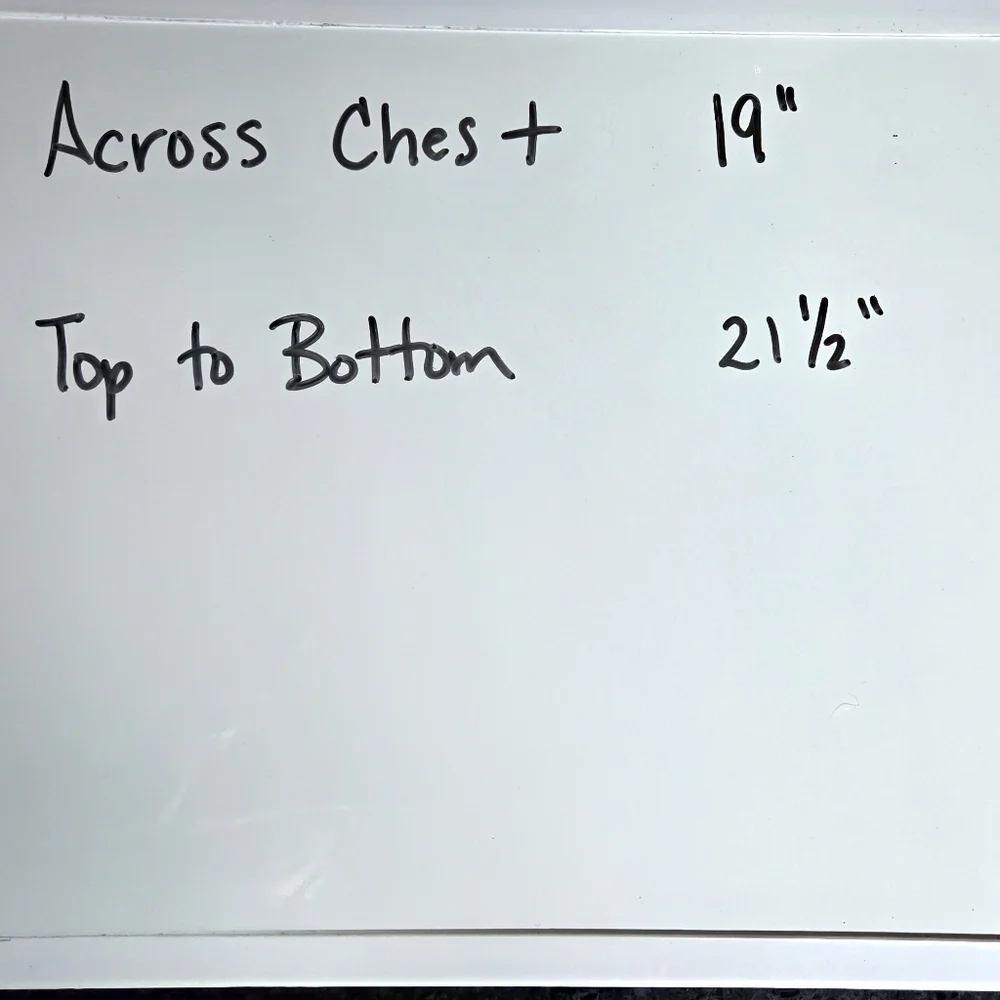 Across Chest 19"
Top to Bottom 21 1/2"